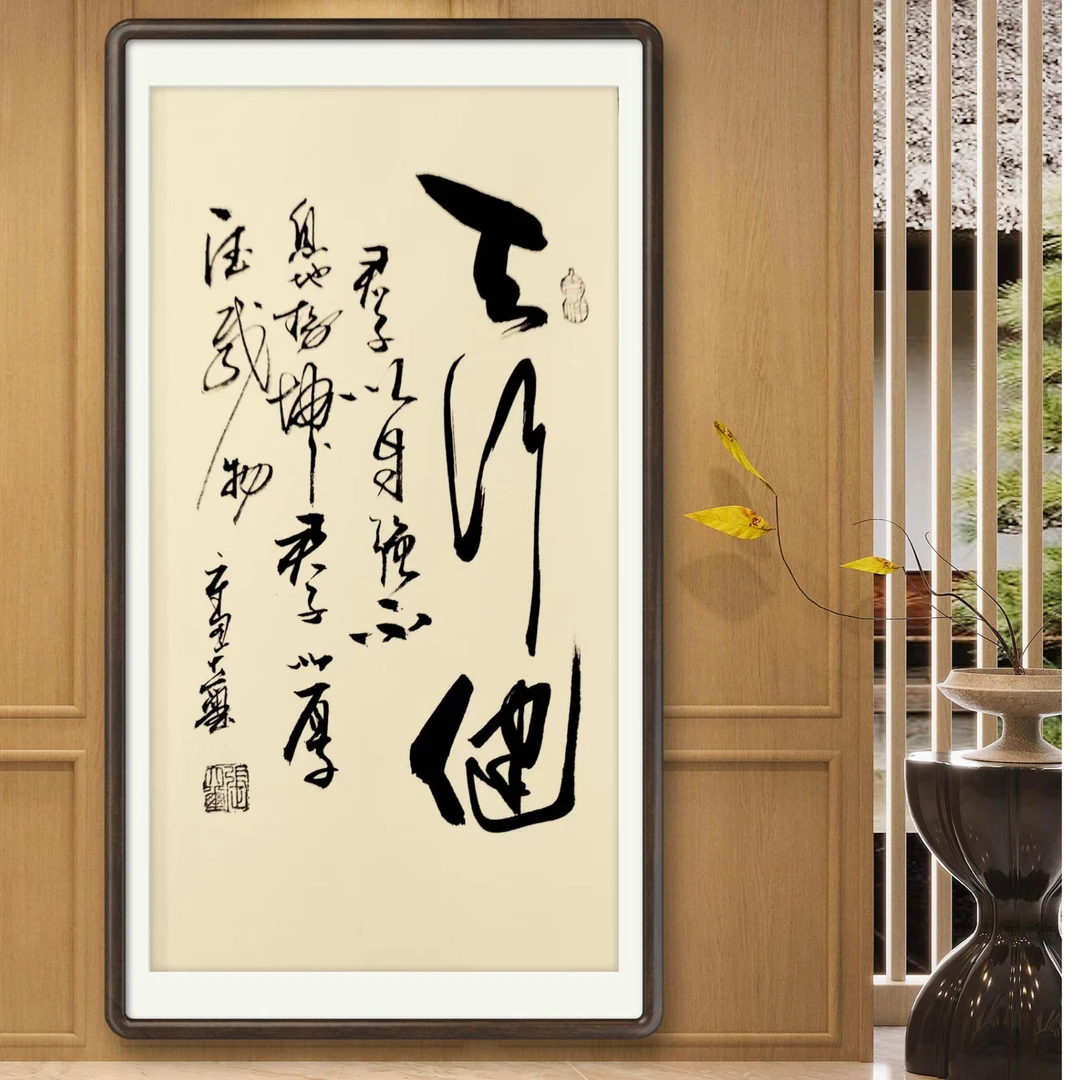 天行健
君子以自强不
息地势坤君子以厚
德载物